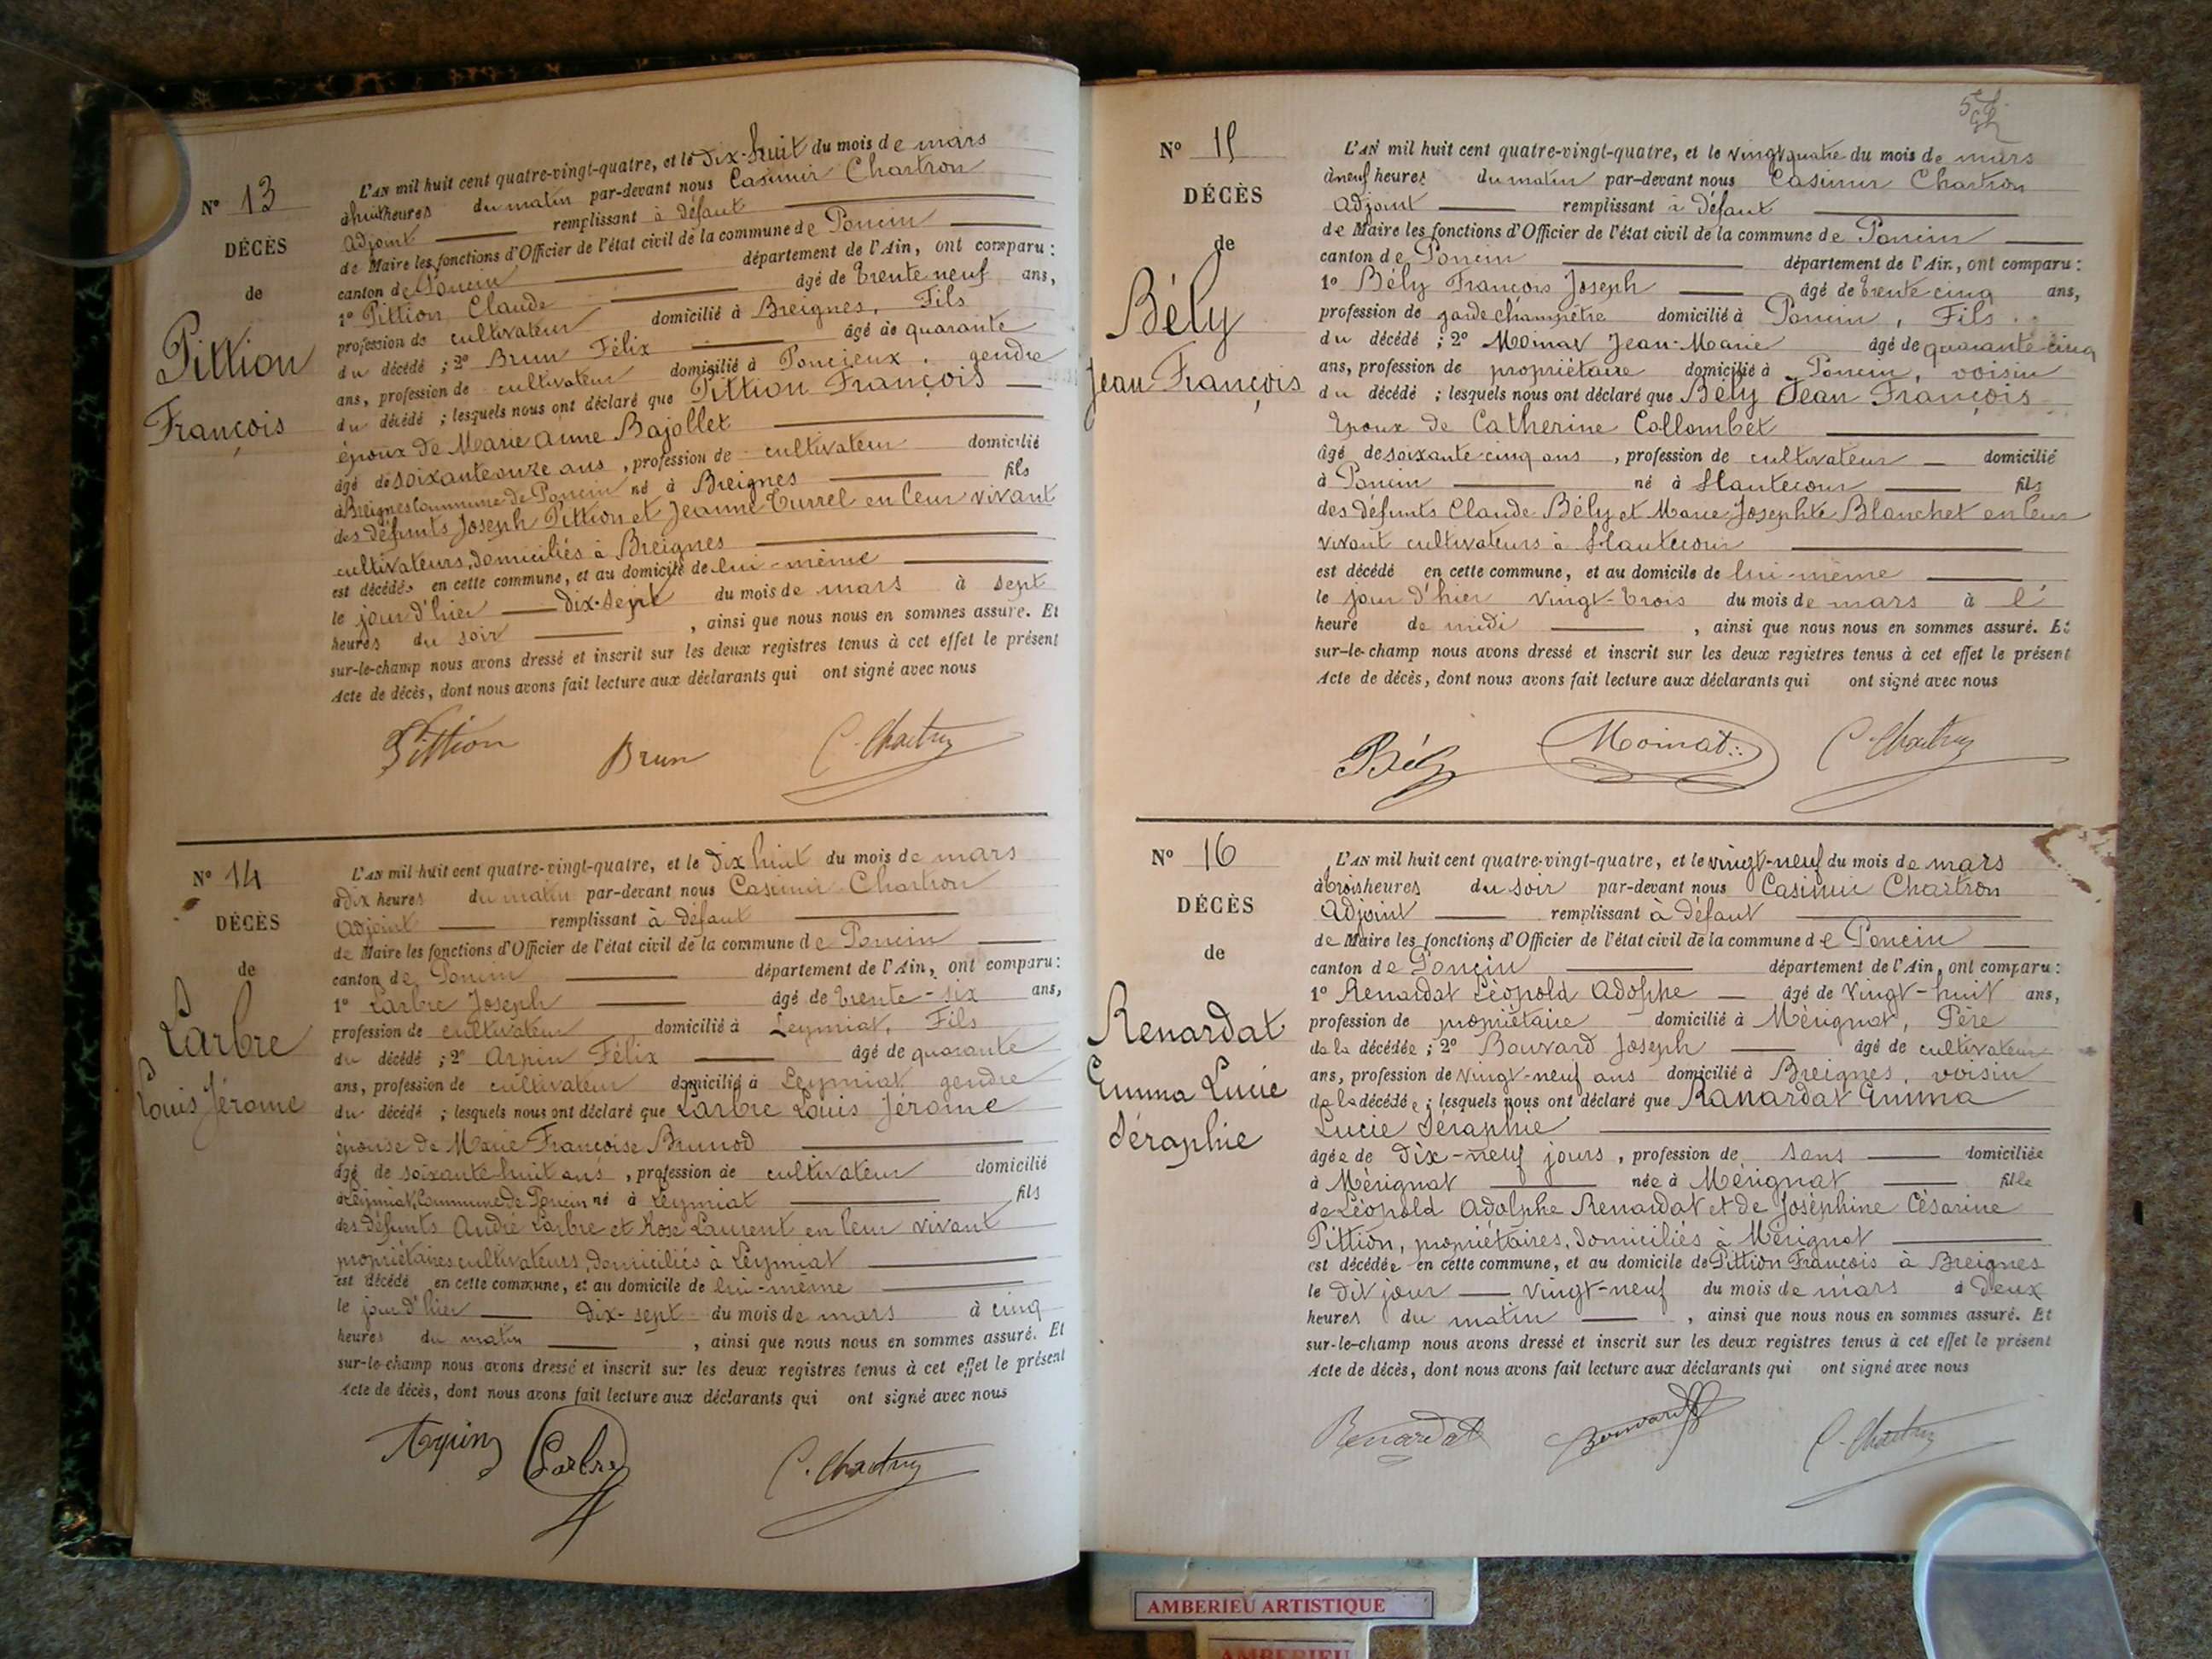 N° 13
DÉCÈS
de
Pittion
François
L'AN mil huit cent quatre-vingt-quatre, et le dix-huit du mois de mars
à huit heures du matin par-devant nous Casimir Chartron
adjoint remplissant à défaut
de Maire les fonctions d'Officier de l'état civil de la commune de Poncin
canton de Poncin département de l'Ain, ont comparu :
1° Pittion Claude âgé de trente neuf ans,
profession de cultivateur domicilié à Breignes, Fils
du décédé ; 2° Brun Félix âgé de quarante
ans, profession de cultivateur domicilié à Poncieux, gendre
du décédé ; lesquels nous ont déclaré que Pittion François
époux de Marie Anne Bajollet
âgé de soixante onze ans, profession de cultivateur domicilié
à Breignes Commune de Poncin né à Breignes fils
des défunts Joseph Pittion et Jeanne Turrel en leur vivant
cultivateurs, domiciliés à Breignes
est décédé en cette commune, et au domicile de lui-même
le jour d'hier dix-sept du mois de mars à sept
heures du soir , ainsi que nous nous en sommes assuré. Et
sur-le-champ nous avons dressé et inscrit sur les deux registres tenus à cet effet le présent
Acte de décès, dont nous avons fait lecture aux déclarants qui ont signé avec nous
Pittion Brun C. Chartron
N° 14
DÉCÈS
de
Larbre
Louis Jérome
L'AN mil huit cent quatre-vingt-quatre, et le dix huit du mois de mars
à dix heures du matin par-devant nous Casimir Chartron
adjoint remplissant à défaut
de Maire les fonctions d'Officier de l'état civil de la commune de Poncin
canton de Poncin département de l'Ain, ont comparu :
1° Larbre Joseph âgé de trente-six ans,
profession de cultivateur domicilié à Leymiat, Fils
du décédé ; 2° Arpin Félix âgé de quarante
ans, profession de cultivateur domicilié à Leymiat gendre
du décédé ; lesquels nous ont déclaré que Larbre Louis Jérome
épouse de Marie Françoise Brunod
âgé de soixante huit ans, profession de cultivateur domicilié
à Leymiat, Commune de Poncin né à Leymiat fils
des défunts André Larbre et Rose Laurent en leur vivant
propriétaires cultivateurs, domiciliés à Leymiat
est décédé en cette commune, et au domicile de lui-même
le jour d'hier dix-sept du mois de mars à cinq
heures du matin , ainsi que nous nous en sommes assuré. Et
sur-le-champ nous avons dressé et inscrit sur les deux registres tenus à cet effet le présent
Acte de décès, dont nous avons fait lecture aux déclarants qui ont signé avec nous
Arpin Larbre C. Chartron
N° 15
DÉCÈS
de
Bély
Jean François
L'AN mil huit cent quatre-vingt-quatre, et le vingt quatre du mois de mars
à neuf heures du matin par-devant nous Casimir Chartron
adjoint remplissant à défaut
de Maire les fonctions d'Officier de l'état civil de la commune de Poncin
canton de Poncin département de l'Ain, ont comparu :
1° Bély François Joseph âgé de trente cinq ans,
profession de garde champêtre domicilié à Poncin, Fils
du décédé ; 2° Moinat Jean-Marie âgé de quarante cinq
ans, profession de propriétaire domicilié à Poncin, voisin
du décédé ; lesquels nous ont déclaré que Bély Jean François
époux de Catherine Collombet
âgé de soixante-cinq ans, profession de cultivateur domicilié
à Poncin né à Hautecour fils
des défunts Claude Bély et Marie Josephte Blanchet en leur
vivant cultivateurs à Hautecour
est décédé en cette commune, et au domicile de lui-même
le jour d'hier vingt-trois du mois de mars à l'
heure de midi , ainsi que nous nous en sommes assuré. Et
sur-le-champ nous avons dressé et inscrit sur les deux registres tenus à cet effet le présent
Acte de décès, dont nous avons fait lecture aux déclarants qui ont signé avec nous
Bély Moinat C. Chartron
N° 16
DÉCÈS
de
Renardat
Emma Lucie
Séraphie
L'AN mil huit cent quatre-vingt-quatre, et le vingt-neuf du mois de mars
à trois heures du soir par-devant nous Casimir Chartron
adjoint remplissant à défaut
de Maire les fonctions d'Officier de l'état civil de la commune de Poncin
canton de Poncin département de l'Ain, ont comparu :
1° Renardat Léopold Adolphe âgé de vingt-huit ans,
profession de propriétaire domicilié à Mérignat, Père
de la décédée ; 2° Bouvard Joseph âgé de cultivateur
ans, profession de vingt-neuf ans domicilié à Breignes, voisin
de la décédée ; lesquels nous ont déclaré que Ranardat Emma
Lucie Séraphie
âgée de dix-neuf jours, profession de sans domiciliée
à Mérignat née à Mérignat fille
de Léopold Adolphe Renardat et de Joséphine Césarine
Pittion, propriétaires, domiciliés à Mérignat
est décédée en cette commune, et au domicile de Pittion François à Breignes
le dit jour vingt-neuf du mois de mars à deux
heures du matin , ainsi que nous nous en sommes assuré. Et
sur-le-champ nous avons dressé et inscrit sur les deux registres tenus à cet effet le présent
Acte de décès, dont nous avons fait lecture aux déclarants qui ont signé avec nous
Renardat Bouvard C. Chartron
AMBERIEU ARTISTIQUE
AMBERIEU